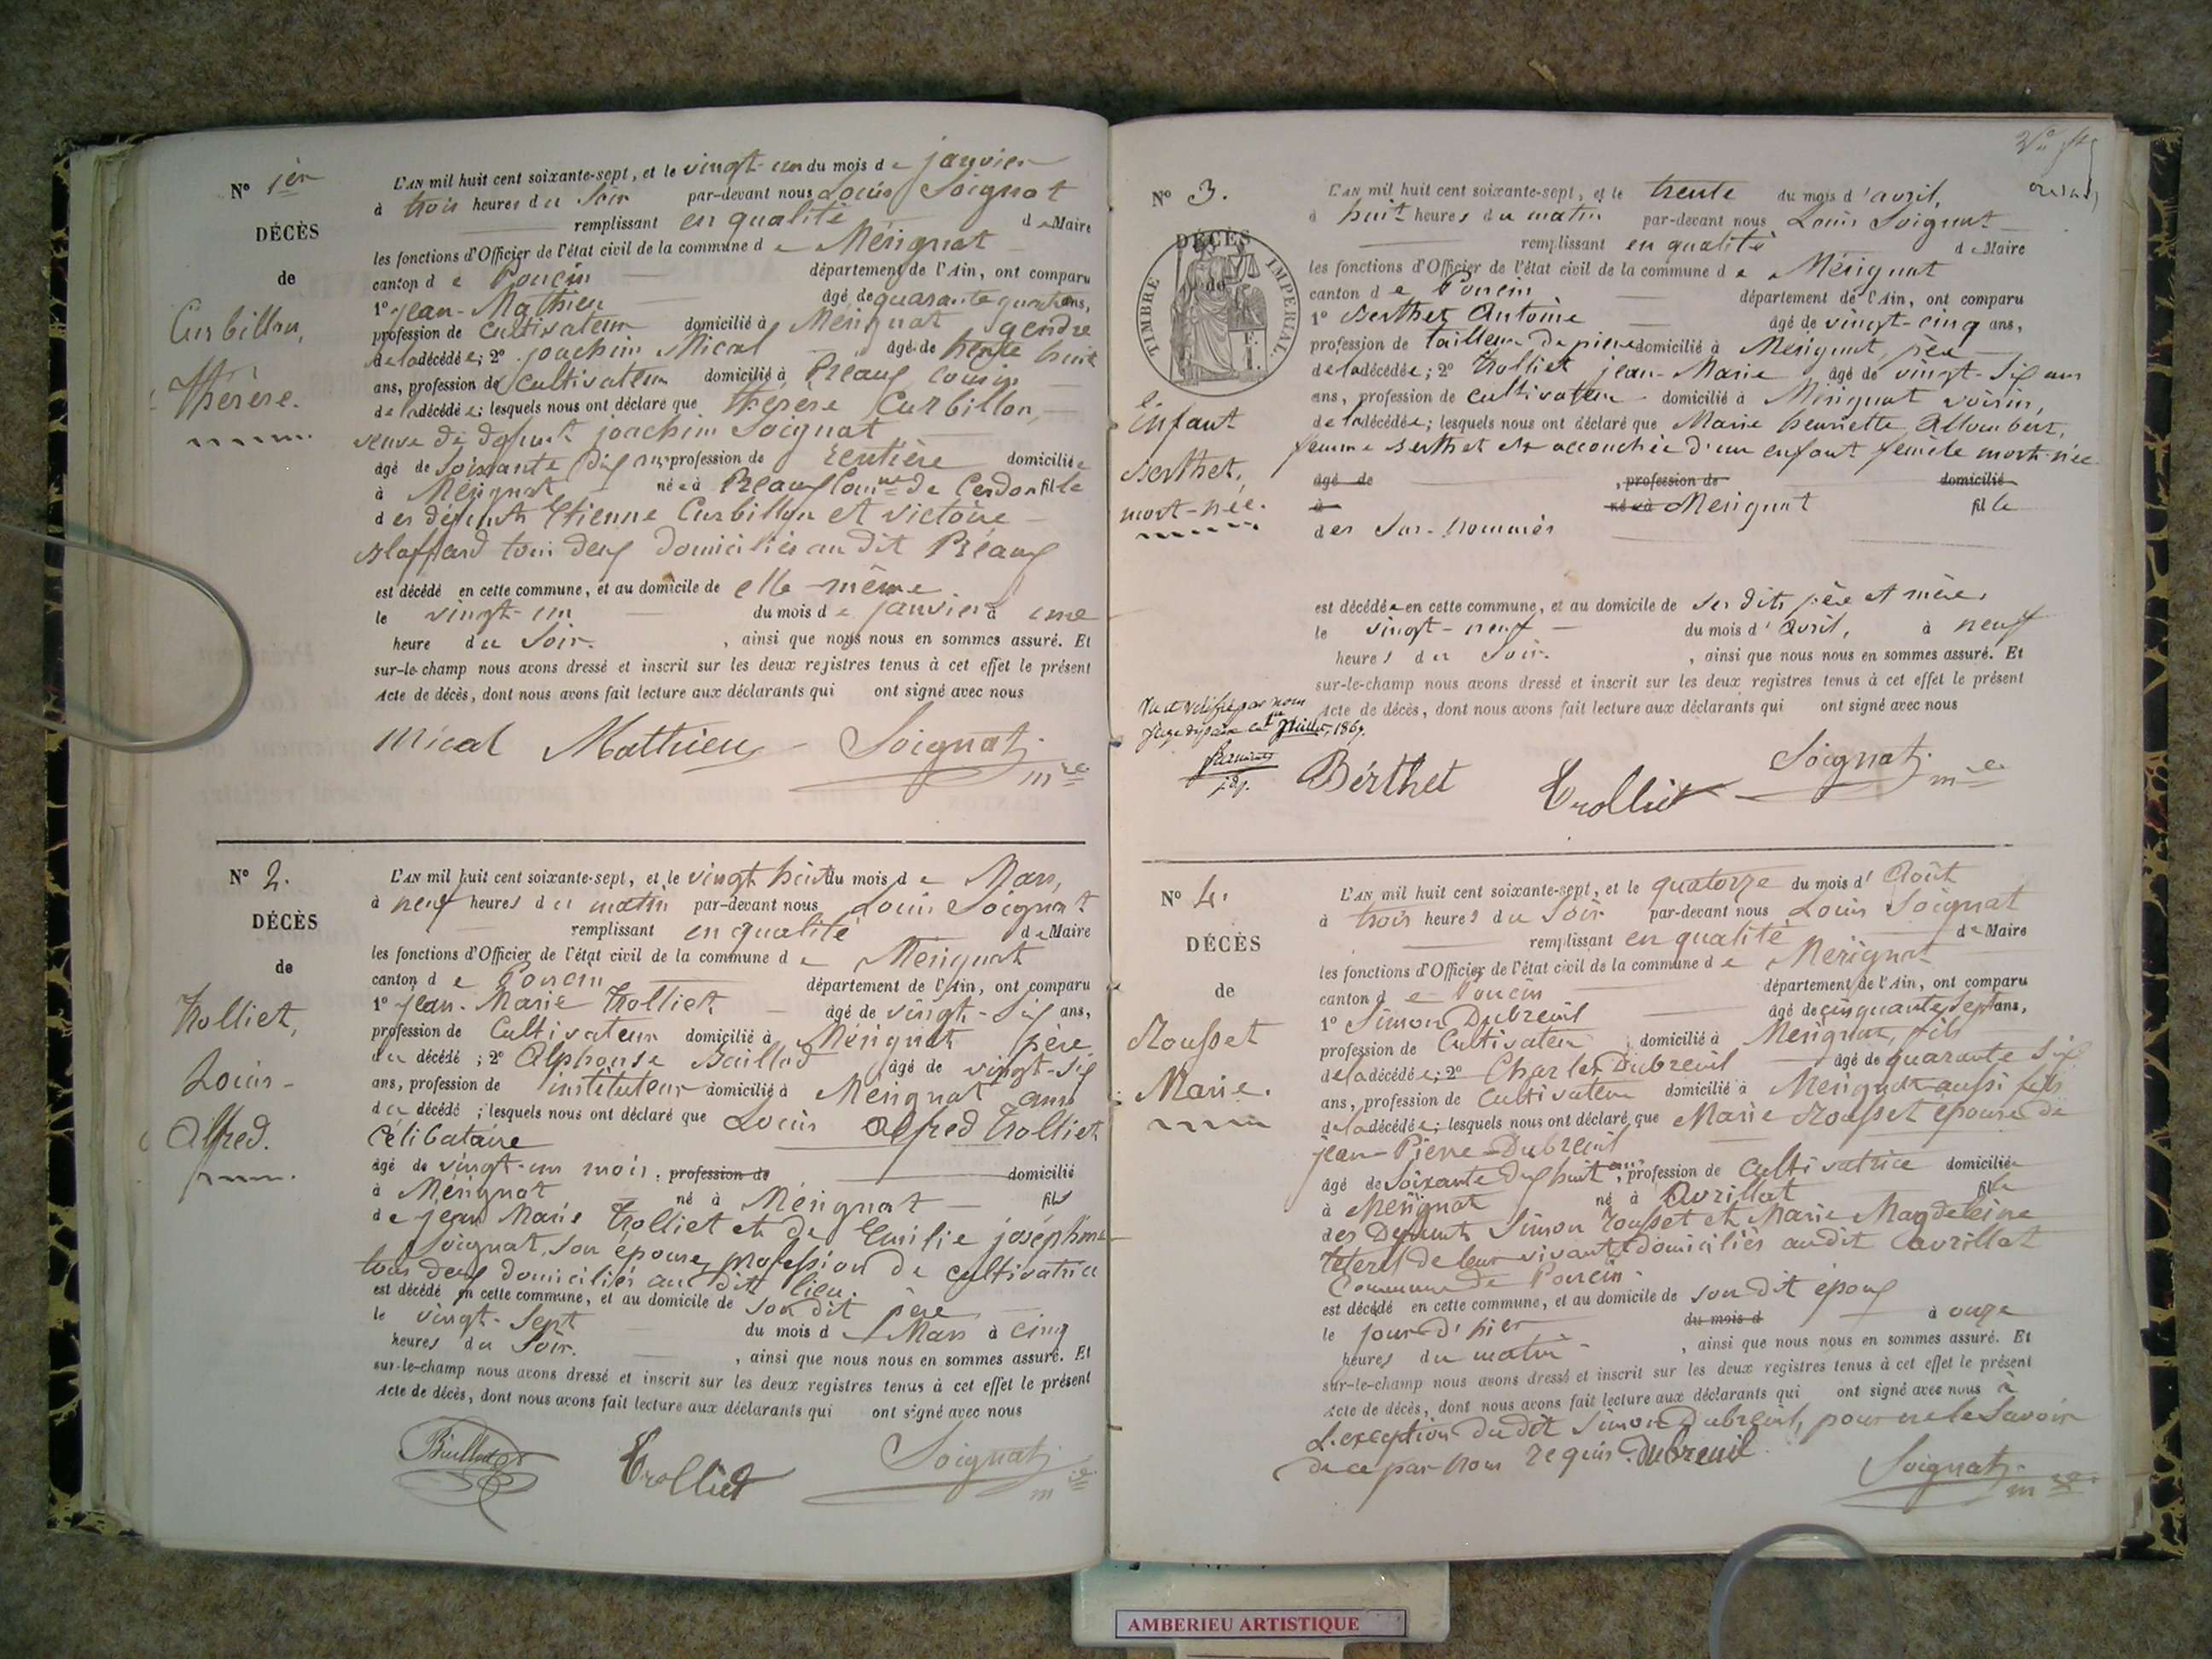 N° 1er
DÉCÈS
de
Curbillon,
Thérèse.
L'AN mil huit cent soixante-sept, et le vingt-un du mois de janvier
à trois heures du soir par-devant nous Louis Soignat
remplissant en qualité de Maire
les fonctions d'Officier de l'état civil de la commune de Mérignat
canton de Poncin département de l'Ain, ont comparu
1° Jean-Mathieu âgé de quarante quatre ans,
profession de cultivateur domicilié à Mérignat gendre
de la décédée; 2° joachim Mical âgé de trente huit
ans, profession de cultivateur domicilié à Préaux cousin
de la décédée; lesquels nous ont déclaré que thérèse Curbillon,
veuve de défunt joachim Soignat
âgé de soixante dix ans profession de rentière domiciliée
à Mérignat née à Préaux Comne de Cerdon fille
des défunts Etienne Curbillon et victoire
Blaffard tous deux domiciliés au dit Préaux
est décédé en cette commune, et au domicile de elle même
le vingt-un du mois de janvier à une
heure du soir. , ainsi que nous nous en sommes assuré. Et
sur-le-champ nous avons dressé et inscrit sur les deux registres tenus à cet effet le présent
Acte de décès, dont nous avons fait lecture aux déclarants qui ont signé avec nous
Mical Mathieu Soignat
mre
N° 2.
DÉCÈS
de
Trolliet,
Louis-
Alfred.
L'AN mil huit cent soixante-sept, et le vingt huit du mois de Mars,
à neuf heures du matin par-devant nous Louis Soignat
remplissant en qualité de Maire
les fonctions d'Officier de l'état civil de la commune de Mérignat
canton de Poncin département de l'Ain, ont comparu
1° Jean-Marie Trolliet âgé de vingt-six ans,
profession de Cultivateur domicilié à Mérignat père
du décédé ; 2° Alphonse Baillod âgé de vingt-six
ans, profession de instituteur domicilié à Mérignat ami
du décédé ; lesquels nous ont déclaré que Louis Alfred Trolliet
célibataire
âgé de vingt-un mois, profession de domicilié
à Mérignat né à Mérignat fils
de jean Marie Trolliet et de Emilie joséphine
Soignat, son épouse, profession de cultivatrice
tous deux domiciliés au dit lieu.
est décédé en cette commune, et au domicile de son dit père
le vingt-sept du mois de Mars à cinq
heures du soir. , ainsi que nous nous en sommes assuré. Et
sur-le-champ nous avons dressé et inscrit sur les deux registres tenus à cet effet le présent
Acte de décès, dont nous avons fait lecture aux déclarants qui ont signé avec nous
Baillod Trolliet Soignat
mre
N° 3.
DÉCÈS
de
TIMBRE IMPERIAL.
enfant
Berthet,
mort-née.
L'AN mil huit cent soixante-sept, et le trente du mois d'avril,
à huit heures du matin par-devant nous Louis Soignat
remplissant en qualité de Maire
les fonctions d'Officier de l'état civil de la commune de Mérignat
canton de Poncin département de l'Ain, ont comparu
1° Berthet Antoine âgé de vingt-cinq ans,
profession de tailleur de pierre domicilié à Mérignat, père
de la décédée; 2° Trolliet jean-Marie âgé de vingt-six ans
ans, profession de cultivateur domicilié à Mérignat voisin,
de la décédée; lesquels nous ont déclaré que Marie henriette Allombert,
femme Berthet est accouchée d'un enfant femelle mort-née
âgé de , profession de domicilié
à né à Mérignat fille
des sus-nommés
est décédée en cette commune, et au domicile de ses dits père et mère,
le vingt-neuf du mois d'avril, à neuf
heures du soir. , ainsi que nous nous en sommes assuré. Et
sur-le-champ nous avons dressé et inscrit sur les deux registres tenus à cet effet le présent
Acte de décès, dont nous avons fait lecture aux déclarants qui ont signé avec nous
Vu et vérifié par nous
juge de paix ce 1er juillet 1867.
j.d.p.
Bérthet Trolliet Soignat
mre
N° 4.
DÉCÈS
de
Rousset
Marie.
L'AN mil huit cent soixante-sept, et le quatorze du mois d'Août
à trois heures du soir par-devant nous Louis Soignat
remplissant en qualité de Maire
les fonctions d'Officier de l'état civil de la commune de Mérignat
canton de Poncin département de l'Ain, ont comparu
1° Simon Dubreuil âgé de cinquante sept ans,
profession de Cultivateur domicilié à Mérignat, fils
de la décédée; 2° Charles Dubreuil âgé de quarante six
ans, profession de Cultivateur domicilié à Mérignat aussi fils
de la décédée; lesquels nous ont déclaré que Marie Rousset épouse de
jean-Pierre Dubreuil
âgé de soixante dix huit ans, profession de Cultivatrice domiciliée
à Mérignat né à Avrillat fille
des Défunts Simon Rousset et Marie Magdeleine
de leur vivant domiciliés audit avrillat
Commune de Poncin.
est décédé en cette commune, et au domicile de son dit époux
le jour d'hier du mois d à onze
heures du matin , ainsi que nous nous en sommes assuré. Et
sur-le-champ nous avons dressé et inscrit sur les deux registres tenus à cet effet le présent
Acte de décès, dont nous avons fait lecture aux déclarants qui ont signé avec nous à
L'exception du dit Simon Dubreuil, pour ne le savoir
de ce par nous requis. Dubreuil
Soignat
mre
AMBERIEU ARTISTIQUE